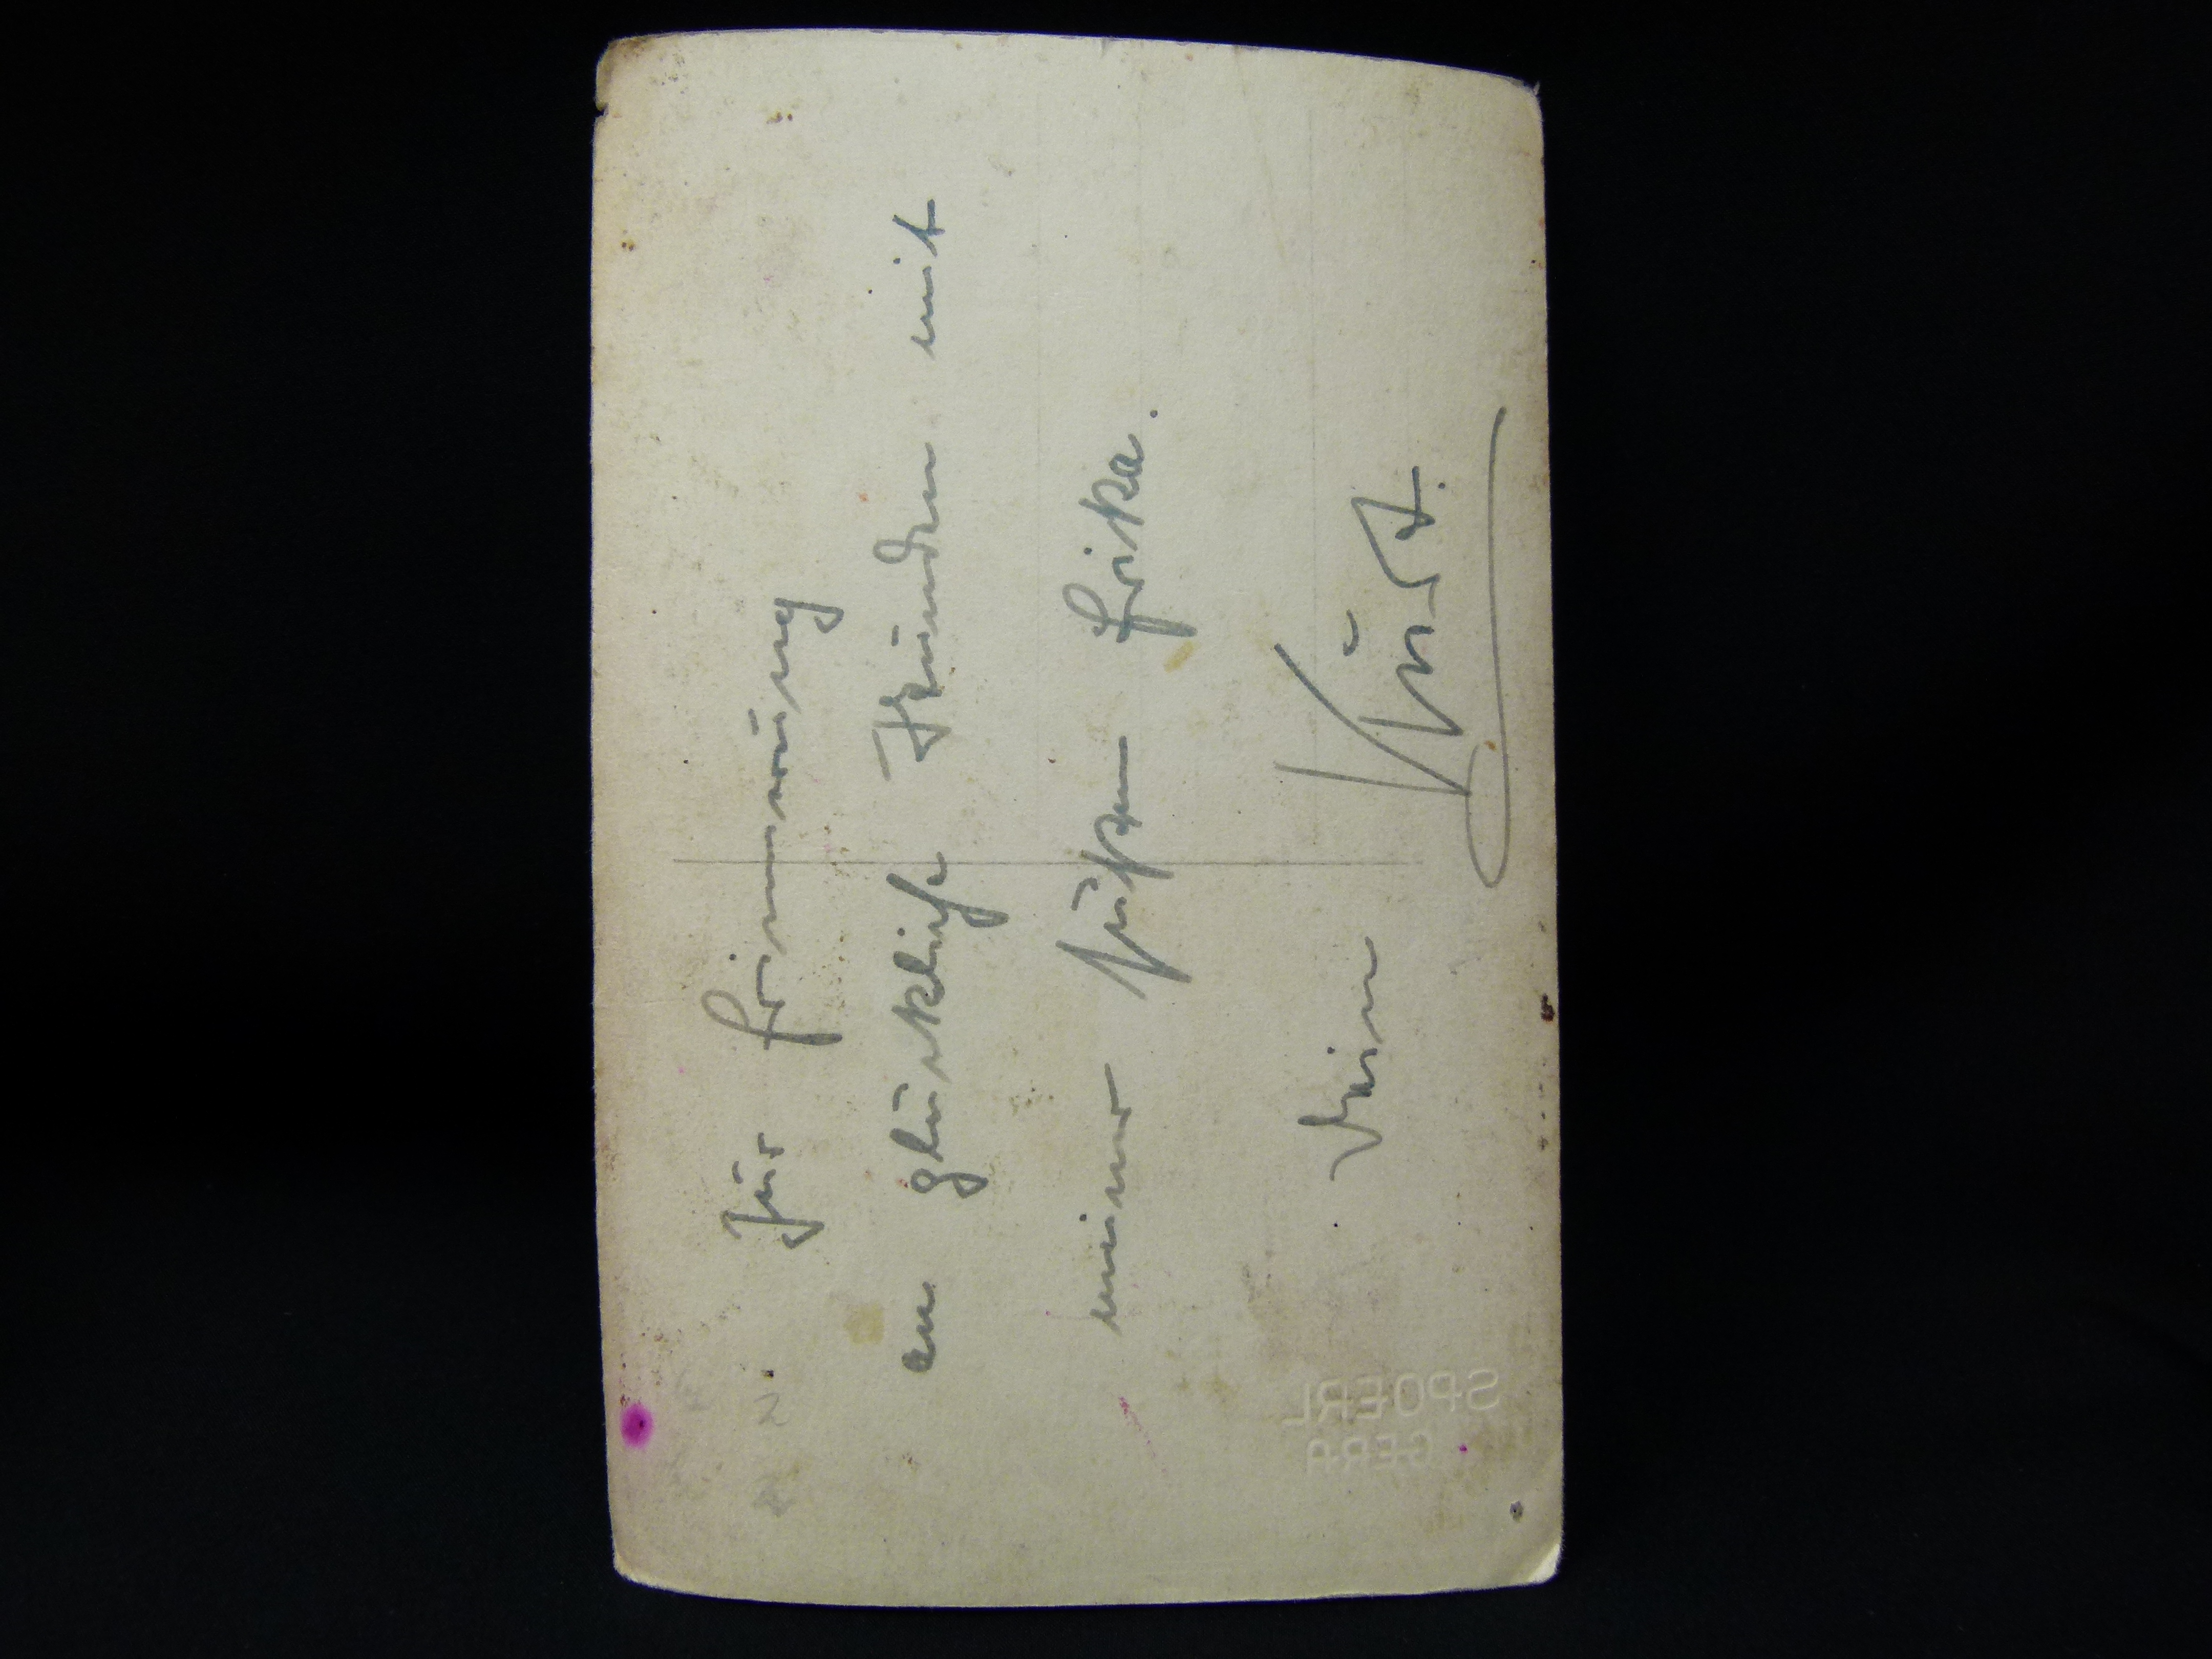 Zur Erinnerung
an glückliche Stunden mit
meiner süßen Erika.
Dein Kurt.
SPOERL
GERA